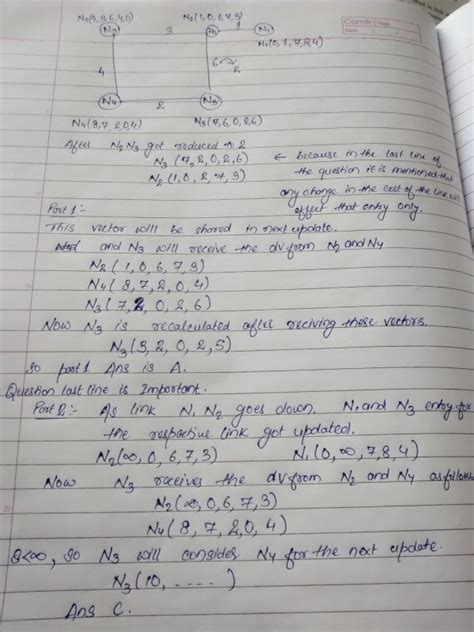 N5(4,3,6,4,0)
N2(1,0,6,7,3)
Camlin
Date
N5
3
N2
1
N1
N1(0,1,7,8,4)
4
6
2
N4
2
N3
N4(8,7,2,0,4)
N3(7,6,0,2,6)
After N2N3 got reduced to 2
N3 (7,2,0,2,6) ← because in the last line of
N2(1,0,2,7,3) the question it is mentioned that
any change in the cost of the link will
effect that entry only.
Part 1:-
This vector will be shared in next update.
and N3 will receive the dv from N2 and N4
N2(1,0,6,7,3)
N4(8,7,2,0,4)
N3(7,2,0,2,6)
Now N3 is recalculated after reciving these vectors.
N3(3,2,0,2,5)
so part 1 Ans is A.
Question last line is Important.
Part 2:- As link N1N2 goes down. N1 and N3 entry for
the respective link got updated.
N2(∞,0,6,7,3) N1(0,∞,7,8,4)
Now N3 receives the dv from N2 and N4 as follows
N2(∞,0,6,7,3)
N4(8,7,2,0,4)
8<∞, so N3 will consider N4 for the next update.
N3(10,.....)
Ans C.